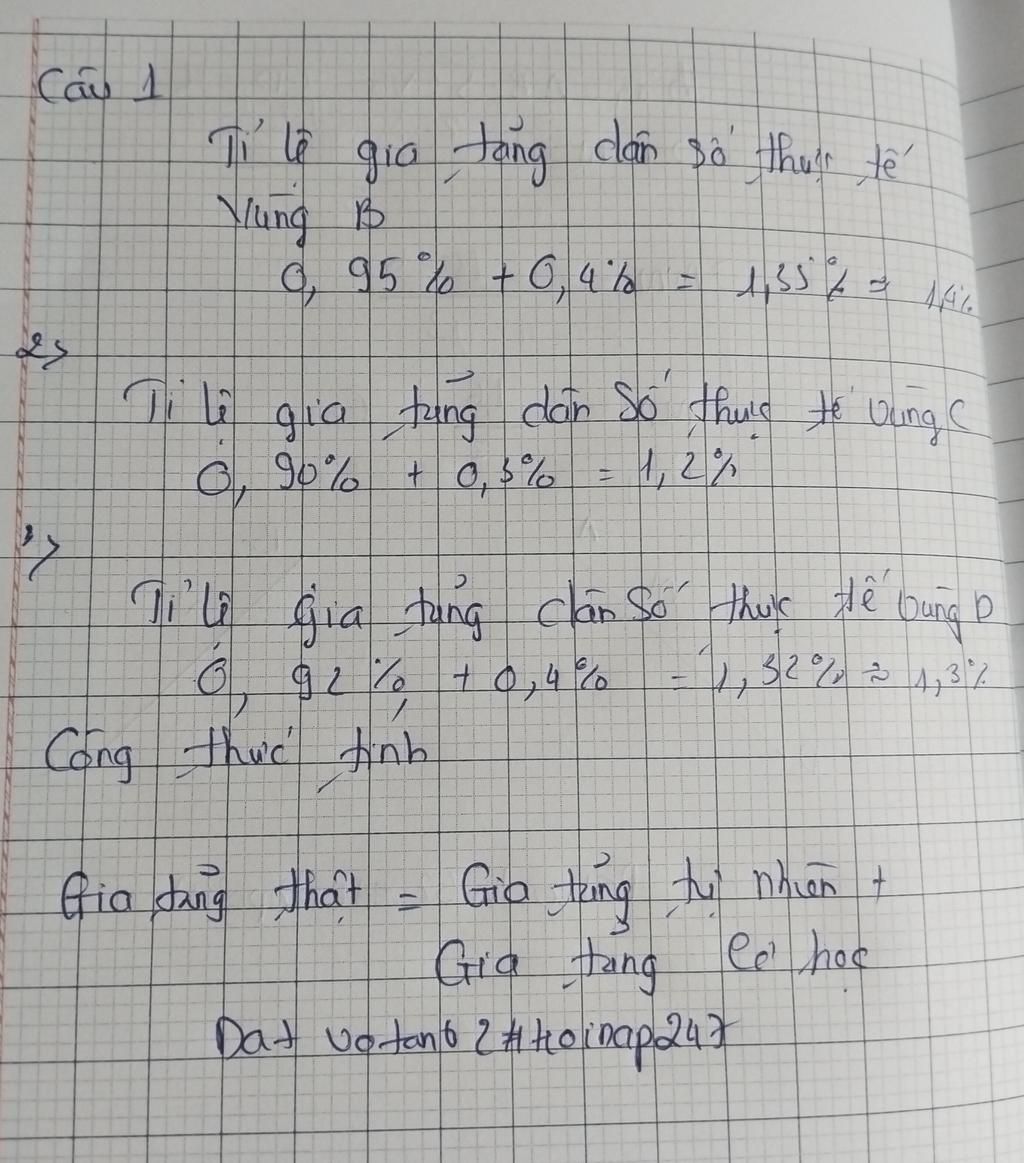 Câu 1
Tỉ lệ gia tăng dân số thực tế
Vùng B
0,95% + 0,4% = 1,35% = 1,4%
2>
Tỉ lệ gia tăng dân số thực tế vùng C
0,90% + 0,3% = 1,2%
3>
Tỉ lệ gia tăng dân số thực tế vùng D
0,92% + 0,4% = 1,32% ≈ 1,3%
Công thức tính
Gia tăng thật = Gia tăng tự nhiên +
Gia tăng cơ học
Dat votanb2#Hoinap247